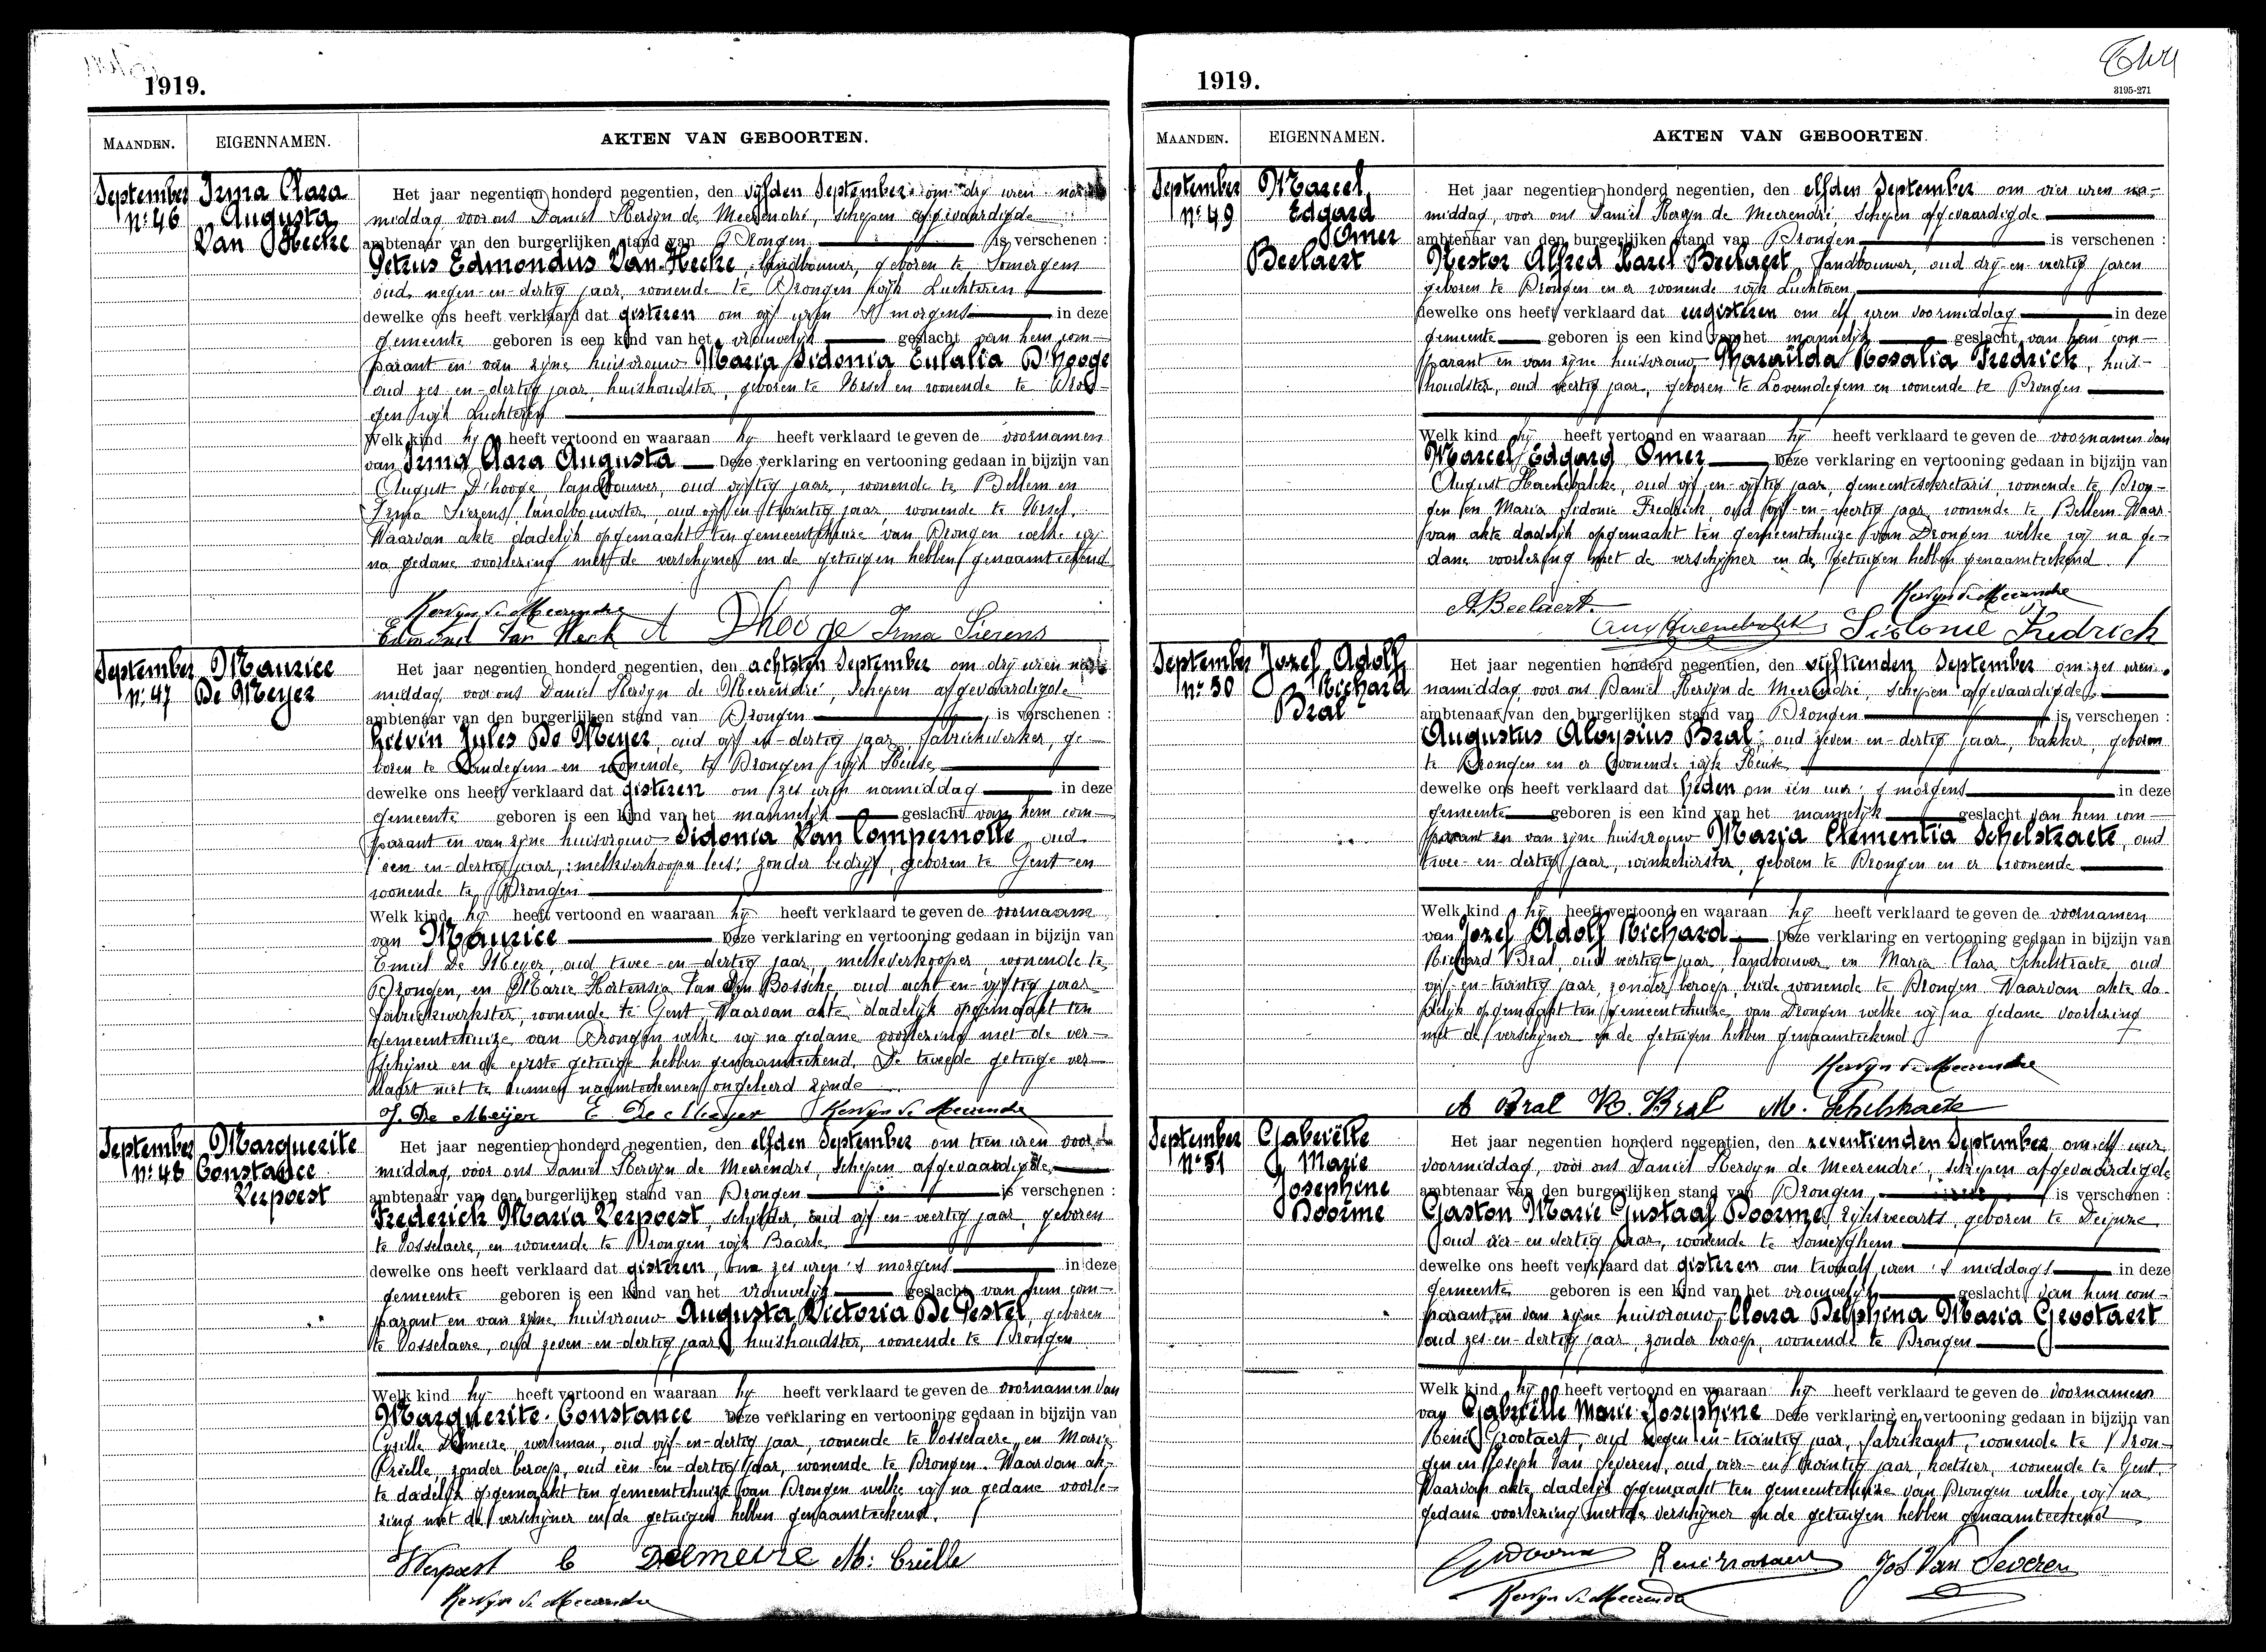 1919.
MAANDEN.
EIGENNAMEN.
AKTEN VAN GEBOORTEN.
September
Nº 46
Irma Clara
Augusta
Van Hecke
Het jaar negentien honderd negentien, den vijfden September om dry uren na
middag voor ons Daniel Kervyn de Meerendré, schepen afgevaardigde
ambtenaar van den burgerlijken stand van Drongen is verschenen :
Petrus Edmondus Van Hecke, landbouwer, geboren te Somergem
oud negen-en-dertig jaar, wonende te Drongen wijk Luchteren
dewelke ons heeft verklaard dat gisteren om vijf uren 's morgens in deze
gemeente geboren is een kind van het vrouwelijk geslacht van hem com-
parant en van zijne huisvrouw Maria Sidonia Eulalia D'hooge
oud zes-en-dertig jaar, huishoudster, geboren te Ursel en wonende te Dron-
gen wijk Luchteren
Welk kind hij heeft vertoond en waaraan hij heeft verklaard te geven de voornamen
van Irma Clara Augusta Deze verklaring en vertooning gedaan in bijzijn van
August D'hooge, landbouwer, oud vijftig jaar, wonende te Bellem en
Irma Sierens, landbouwster, oud vijf en twintig jaar, wonende te Ursel.
Waarvan akte dadelijk opgemaakt ten gemeentehuize van Drongen welke wij
na gedane voorlezing met de verschijner en de getuigen hebben genaamteekend
Kervyn de Meerendre
Edmond Van Heck A Dhooge Irma Sierens
September
Nº 47
Maurice
De Meyer
Het jaar negentien honderd negentien, den achtsten September om dry uren na
middag voor ons Daniel Kervyn de Meerendré, schepen afgevaardigde
ambtenaar van den burgerlijken stand van Drongen is verschenen :
Livin Jules De Meyer, oud vijf en-dertig jaar, fabriekwerker, ge-
boren te Landegem en wonende te Drongen wijk Keuse
dewelke ons heeft verklaard dat gisteren om zes uren namiddag in deze
gemeente geboren is een kind van het mannelijk geslacht van hem com-
parant en van zijne huisvrouw Sidonia Van Compernolle, oud
een en-dertig jaar, : melkverkoopn lees: zonder bedrijf, geboren te Gent en
wonende te Drongen
Welk kind hij heeft vertoond en waaraan hij heeft verklaard te geven de voornaam
van Maurice Deze verklaring en vertooning gedaan in bijzijn van
Emiel De Meyer, oud twee-en-dertig jaar, melkverkooper, wonende te
Drongen, en Marie Hortensia Van Den Bossche, oud acht-en-vijftig jaar
fabriekwerkster, wonende te Gent. Waarvan akte dadelijk opgemaakt ten
gemeentehuize van Drongen welke wij na gedane voorlezing met de ver-
schijner en de eerste getuige hebben genaamteekend. De tweede getuige ver-
klaart niet te kunnen naamteekenen ongeleerd zijnde
J. De Meijer E. De Meyer Kervyn de Meerendre
September
Nº 48
Marguerite
Constance
Verpoest
Het jaar negentien honderd negentien, den elfden September om tien uren voor
middag voor ons Daniel Kervyn de Meerendré, schepen afgevaardigde
ambtenaar van den burgerlijken stand van Drongen is verschenen :
Frederich Maria Verpoest, schilder, oud vijf en-veertig jaar, geboren
te Vosselaere, en wonende te Drongen wijk Baarle
dewelke ons heeft verklaard dat gisteren, om zes uren 's morgens in deze
gemeente geboren is een kind van het vrouwelijk geslacht van hem com-
parant en van zijne huisvrouw Augusta Victoria De Pestel, geboren
te Vosselaere, oud zeven-en-dertig jaar, huishoudster, wonende te Drongen
Welk kind hij heeft vertoond en waaraan hij heeft verklaard te geven de voornamen van
Marguerite Constance Deze verklaring en vertooning gedaan in bijzijn van
Cyrille Delmeire werkman, oud vijf-en-dertig jaar, wonende te Vosselaere, en Marie
Crielle zonder beroep, oud één-en-dertig jaar, wonende te Drongen. Waarvan ak-
te dadelijk opgemaakt ten gemeentehuize van Drongen welke wij na gedane voorle-
zing met de verschijner en de getuigen hebben genaamteekend.
Verpoest C Delmeire M: Crielle
Kervyn de Meerendre
1919.
3195-271
MAANDEN.
EIGENNAMEN.
AKTEN VAN GEBOORTEN.
September
Nº 49
Marcel
Edgard
Omer
Beelaert
Het jaar negentien honderd negentien, den elfden September om vier uren na-
middag, voor ons Daniel Kervyn de Meerendré, schepen afgevaardigde
ambtenaar van den burgerlijken stand van Drongen is verschenen :
Nestor Alfred Karel Beelaert, landbouwer, oud dry-en-veertig jaren
geboren te Drongen en er wonende wijk Luchteren
dewelke ons heeft verklaard dat eergisteren om elf uren voormiddag in deze
gemeente geboren is een kind van het mannelijk geslacht van hem com-
parant en van zijne huisvrouw Pharaïlda Rosalia Fredrick, huis-
houdster, oud veertig jaar, geboren te Lovendegem en wonende te Drongen
Welk kind hij heeft vertoond en waaraan hij heeft verklaard te geven de voornamen van
Marcel Edgard Omer Deze verklaring en vertooning gedaan in bijzijn van
August Haenebalcke, oud vijf-en-vijftig jaar, gemeentesekretaris, wonende te Dron-
gen en Maria Sidonie Fredrick, oud vijf-en-veertig jaar, wonende te Bellem. Waar-
van akte dadelijk opgemaakt ten gemeentehuize van Drongen welke wij na ge-
dane voorlezing met de verschijner en de getuigen hebben genaamteekend
A. Beelaert Kervyn de Meerendre
Sidonie Fredrich
September
Nº 50
Jozef Adolf
Richard
Bral
Het jaar negentien honderd negentien, den vijftienden September om zes uren
namiddag voor ons Daniel Kervyn de Meerendré, schepen afgevaardigde
ambtenaar van den burgerlijken stand van Drongen is verschenen :
Augustus Aloysius Bral, oud zeven-en-dertig jaar, bakker, geboren
te Drongen en er wonende wijk Keuse
dewelke ons heeft verklaard dat heden om één uur 's morgens in deze
gemeente geboren is een kind van het mannelijk geslacht van hem com-
parant en van zijne huisvrouw Maria Clementia Schelstraete, oud
twee-en-dertig jaar, winkelierster, geboren te Drongen en er wonende
Welk kind hij heeft vertoond en waaraan hij heeft verklaard te geven de voornamen
van Jozef Adolf Richard Deze verklaring en vertooning gedaan in bijzijn van
Richard Bral, oud veertig jaar, landbouwer en Maria Clara Schelstraete, oud
vijf-en-twintig jaar, zonder beroep, beide wonende te Drongen. Waarvan akte da-
delijk opgemaakt ten gemeentehuize van Drongen welke wij na gedane voorlezing
met de verschijner en de getuigen hebben genaamteekend
Kervyn de Meerendre
A Bral R. Bral M. Schelstraete
September
Nº 51
Gabriëlle
Marie
Josephine
Doorme
Het jaar negentien honderd negentien, den zeventienden September om elf uur
voormiddag, voor ons Daniel Kervyn de Meerendré, schepen afgevaardigde
ambtenaar van den burgerlijken stand van Drongen is verschenen :
Gaston Marie Gustaaf Doorme, rijksveearts, geboren te Deijnze
oud vier-en-dertig jaar, wonende te Somerghem
dewelke ons heeft verklaard dat gisteren om twaalf uren 's middags in deze
gemeente geboren is een kind van het vrouwelijk geslacht van hem com-
parant en van zijne huisvrouw Clara Delphina Maria Grootaert
oud zes-en-dertig jaar, zonder beroep, wonende te Drongen
Welk kind hij heeft vertoond en waaraan hij heeft verklaard te geven de voornamen
van Gabriëlle Marie Josephine Deze verklaring en vertooning gedaan in bijzijn van
René Grootaert, oud negen-en-twintig jaar, fabrikant, wonende te Dron-
gen en Joseph Van Severen, oud vier-en-twintig jaar, hoelsier, wonende te Gent.
Waarvan akte dadelijk opgemaakt ten gemeentehuize van Drongen welke wij na
gedane voorlezing met de verschijner en de getuigen hebben genaamteekend
GDoorme René Grootaert Jos Van Severen
Kervyn de Meerendre